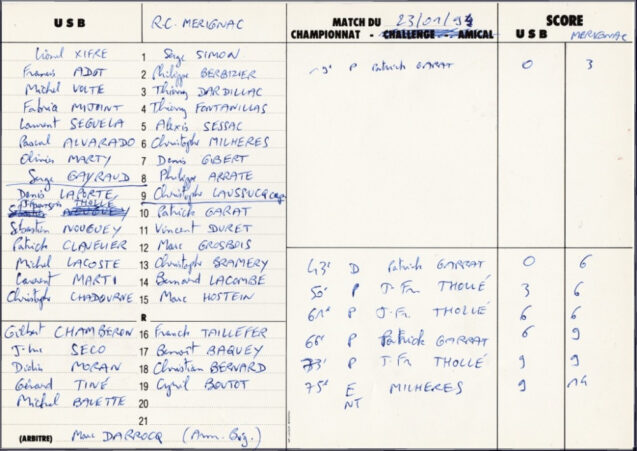 USB R.C. MERIGNAC MATCH DU 23/01/94 SCORE
CHAMPIONNAT - CHALLENGE - AMICAL USB MERIGNAC
Lionel XIFRE 1 Serge SIMON
Francis ADOT 2 Philippe BERBIZIER
Michel VOLTE 3 Thierry DARDILLAC
Fabrice MIJOINT 4 Thierry FONTANILLAS
Laurent SEGUELA 5 Alexis SESSAC
Pascal ALVARADO 6 Christophe MILHERES
Olivier MARTY 7 Denis GIBERT
Serge GAYRAUD 8 Philippe ARRATE
Denis LAPORTE 9 Christophe LAUSSUCQ cap
J.François THOLLÉ 10 Patrick GARAT
Sébastien NOUGUEY 11 Vincent DURET
Patrick CLAVELIER 12 Marc GROSBOIS
Michel LACOSTE 13 Christophe BRAMERY
Laurent MARTI 14 Bernard LACOMBE
Christophe CHADOURNE 15 Marc HOSTEIN
R
Gilbert CHAMBERON 16 Franck TAILLEFER
J-Luc SECO 17 Benoît BAQUEY
Didier MORAN 18 Christian BERNARD
Gérard TINÉ 19 Cyril BOUTOT
Michel BALETTE 20
21
(ARBITRE) Marc DARROCQ (Arm. Big.)
19' P Patrick GARAT 0 3
43' D Patrick GARRAT 0 6
50' P J. Fr. THOLLÉ 3 6
61' P J. Fr. THOLLÉ 6 6
66' P Patrick GARRAT 6 9
73' P J. Fr THOLLÉ 9 9
75' E MILHERES 9 14
NT